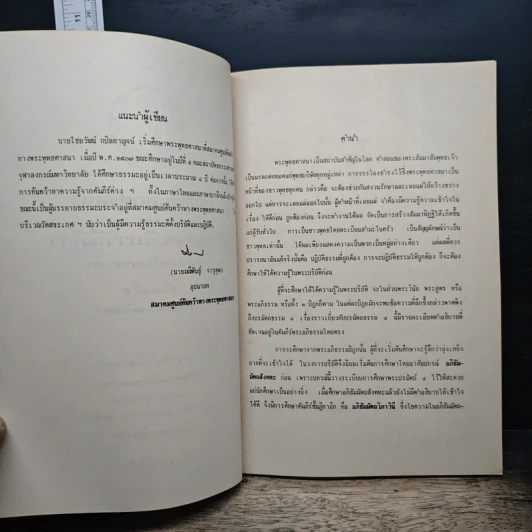 แนะนำผู้เขียน
นายไชยวัฒน์ กปิลกาญจน์ เริ่มศึกษาพระพุทธศาสนาที่สมาคมศูนย์ค้นคว้า
ทางพระพุทธศาสนา เมื่อปี พ.ศ. ๒๕๐๗ ขณะศึกษาอยู่ในปีที่ ๕ คณะสถาปัตยกรรมศาสตร์
จุฬาลงกรณ์มหาวิทยาลัย ได้ศึกษาธรรมะอยู่เป็นเวลาประมาณ ๘ ปี
การค้นคว้าหาความรู้จากคัมภีร์ต่าง ๆ ทั้งในภาษาไทยและภาษาบาลี
ขณะนี้เป็นผู้บรรยายธรรมะประจำอยู่ที่สมาคมศูนย์ค้นคว้าทางพระพุทธศาสนา
บริเวณวัดสระเกศ ฯ นับว่าเป็นผู้มีความรู้ธรรมะทั้งปริยัติและปฏิบัติ.
(นายมณีพันธุ์ จารุดุล)
อุปนายก
สมาคมศูนย์ค้นคว้าทางพระพุทธศาสนา
คำนำ
พระพุทธศาสนาเป็นสถาบันสำคัญในโลก คำสอนของพระสัมมาสัมพุทธเจ้า
เป็นมรดกตกทอดแก่พุทธบริษัททุกหมู่เหล่า การธำรงไว้ซึ่งพระพุทธศาสนาเป็น
หน้าที่ของชาวพุทธทุกคน กล่าวคือ จะต้องช่วยกันสงวนรักษาและเผยแผ่ให้กว้างขวาง
ออกไป แต่การจะเผยแผ่นั้น ผู้ทำหน้าที่เผยแผ่ จำต้องมีความรู้ความเข้าใจใน
เรื่อง ให้ดีก่อน ถูกต้องก่อน จึงจะทำงานได้ผล จัดเป็นการสร้างสัมมาทิฏฐิให้เกิดขึ้น
แก่ผู้รับทั่วไป การเป็นชาวพุทธโดยทะเบียนสำมะโนครัว เป็นสัญลักษณ์ว่าเป็น
ชาวพุทธเท่านั้น ได้ผลเพียงแสดงความเป็นพวกเป็นหมู่อย่างเดียว แต่ผลที่ควร
ปรารถนาอันแท้จริงนั้นคือ ปฏิบัติธรรมที่ถูกต้อง การจะปฏิบัติธรรมให้ถูกต้อง ก็จะต้อง
ศึกษาให้ได้ความรู้ในพระปริยัติก่อน
ผู้ที่จะศึกษาให้ได้ความรู้ในพระปริยัติ จะเป็นส่วนพระวินัย พระสูตร หรือ
พระอภิธรรม หรือทั้ง ๓ ปิฎกก็ตาม ในแต่ละปิฎกมักจะพบข้อความที่ลึกซึ้งกล่าวพาดพิง
ถึงปรมัตถธรรม ๔ เรื่องราวเกี่ยวกับปรมัตถธรรม ๔ นี้มีรายละเอียดคำอธิบายที่
ชัดเจนอยู่ในคัมภีร์พระอภิธรรมโดยตรง
การจะศึกษาจากพระอภิธรรมปิฎกนั้น ผู้ที่จะเริ่มต้นศึกษาจะรู้สึกว่ายุ่งเหยิง
ยากที่จะเข้าใจได้ ในวงการปริยัติจึงนิยมเริ่มการศึกษาโดยอาศัยปกรณ์ อภิธัม-
มัตถสังคหะ ก่อน เพราะปกรณ์นี้วางระเบียบการศึกษาพระปรมัตถ์ ๔ ไว้ให้สะดวก
แก่นักศึกษาเป็นอย่างยิ่ง เมื่อศึกษาอภิธัมมัตถสังคหะแล้วยังไม่มีคำอธิบายให้เข้าใจ
ได้ดี จึงมีการศึกษาคัมภีร์ชั้นฎีกาอีก คือ อภิธัมมัตถวิภาวินี ซึ่งไขความในอภิธัมมัต-